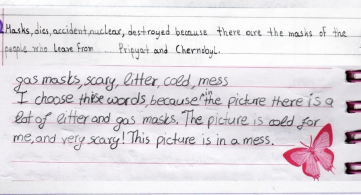 Masks, dies, accident, nuclear, destroyed because there are the masks of the
people who leave from Pripyat and Chernobyl.
gas masks, scary, litter, cold, mess
I choose these words, because in the picture there is a
lot of litter and gas masks. The picture is cold for
me, and very scary! This picture is in a mess.